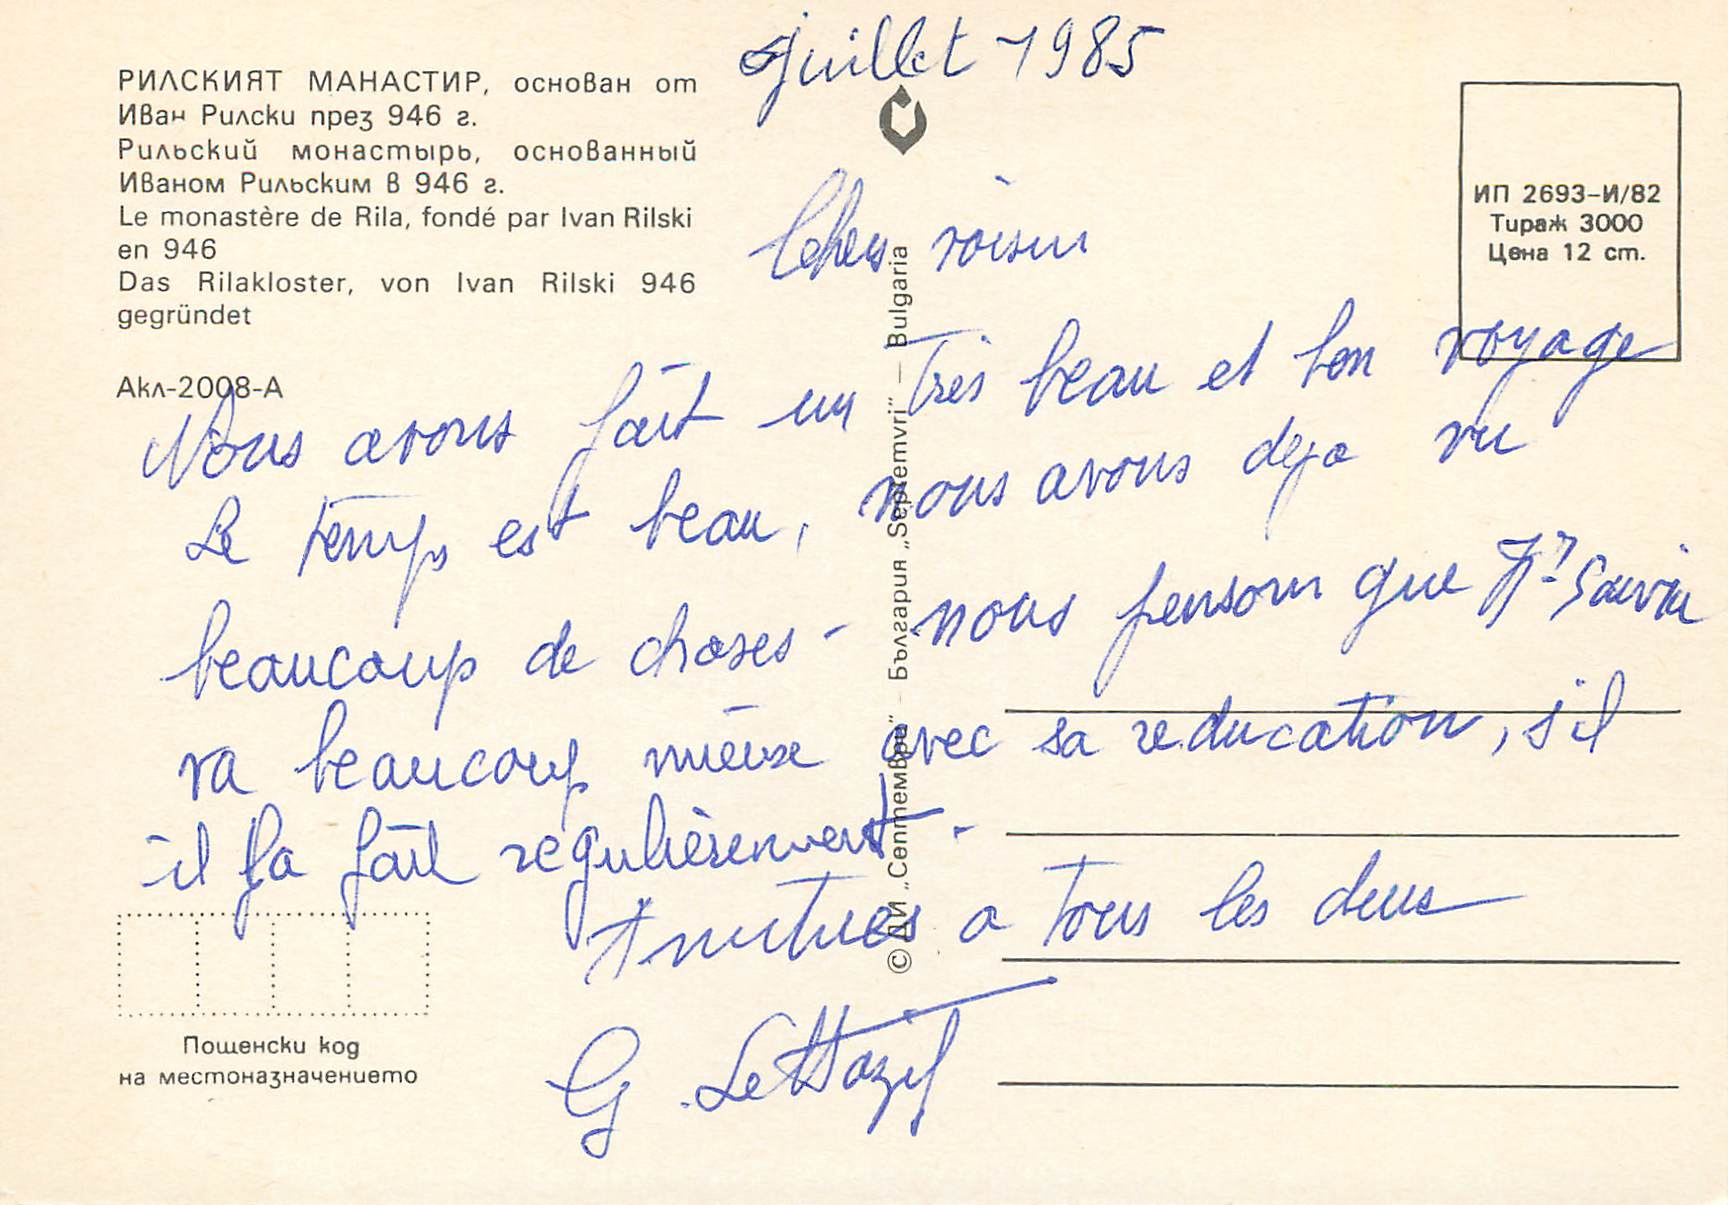 РИЛСКИЯТ МАНАСТИР, основан от
Иван Рилски през 946 г.
Рильский монастырь, основанный
Иваном Рильским в 946 г.
Le monastère de Rila, fondé par Ivan Rilski
en 946
Das Rilakloster, von Ivan Rilski 946
gegründet
Акл-2008-А
juillet 1985
ИП 2693-И/82
Тираж 3000
Цена 12 ст.
Chers voisins
Nous avons fait un très beau et bon voyage
Le temps est beau, nous avons deja vu
beaucoup de choses - nous pensons que Mr
va beaucoup mieux avec sa reducation, s'il
il la fait regulièrement.
Amitiés a tous les deux
G.
© ДИ „Септември" – България „Septemvri" – Bulgaria
Пощенски код
на местоназначението